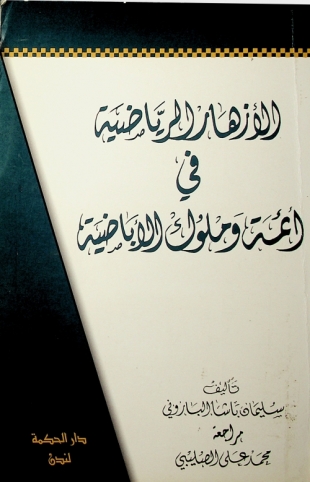 الأزهار الرياضية
في
أئمة وملوك الأباضية
تأليف
سليمان باشا الباروني
مراجعة
محمد علي الصليبي
دار الحكمة
لندن